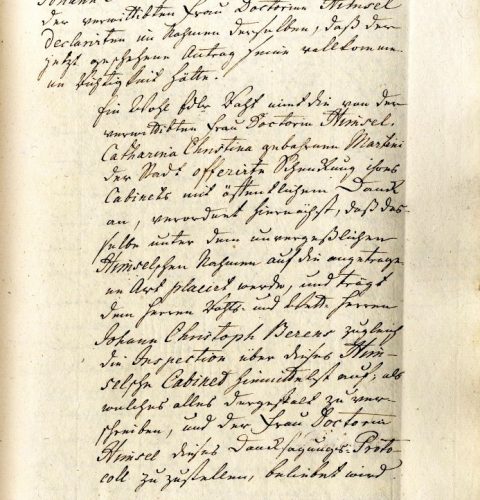 Johann C
der verwittibten Frau Doctorin Himsel
declarirten im Nahmen derselben, daß der
jetzt geschehene Antrag seine vollkomme-
ne Richtigkeit hätte.
Ein Wohl Edler Raht nimt die von der
verwittibten Frau Doctorin Himsel,
Catharina Christina gebohrnen Martini
der Stadt offerirte Schenkung ihres
Cabinets mit öffentlichem Danck
an, verordnet hiernächst, daß das-
selbe unter dem unvergeßlichen
Himselschen Nahmen auf die angetrage-
ne Art placirt werde, und trägt
dem Herren Rahts- und Herren
Johann Christoph Berens zugleich
die Inspection über dieses Him-
selsche Cabinet hiemittelst auf; als
welches alles dergestalt zu ver-
schreiben, und der Frau Doctorin
Himsel dieses Dancksagungs-Proto-
coll zuzustellen, beliebet wird